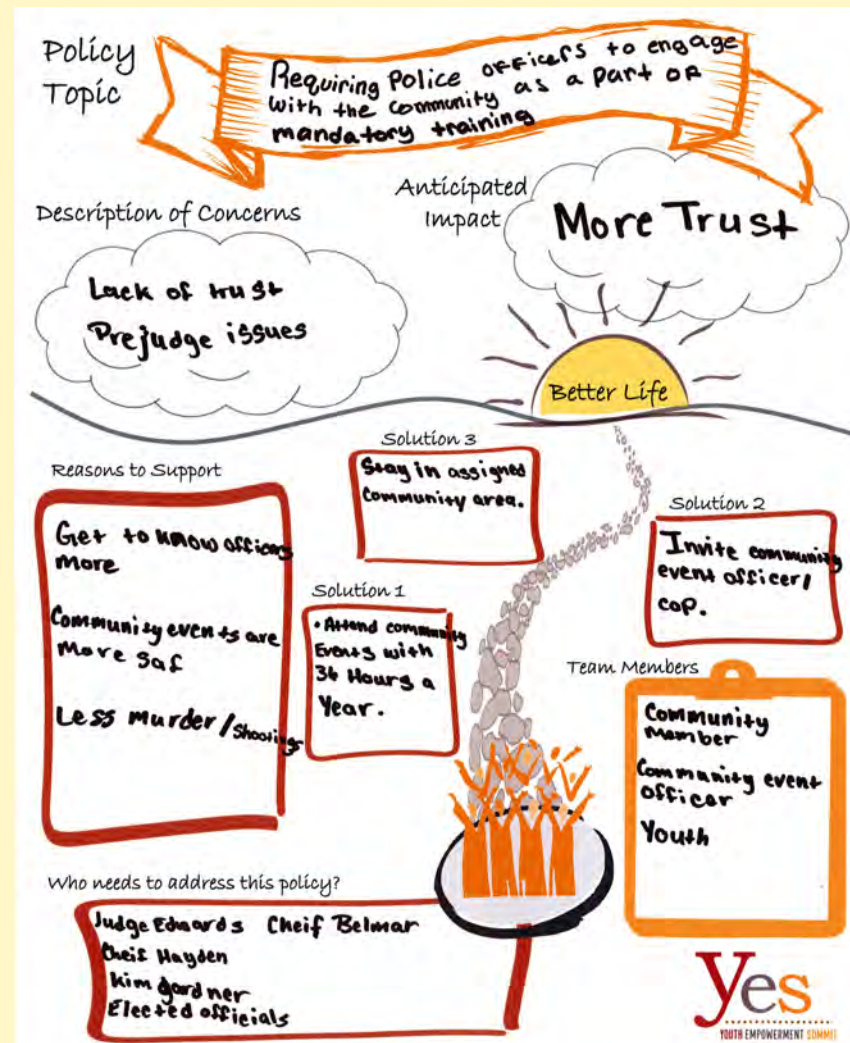 Policy
Topic
Requiring Police officers to engage
with the community as a part of
mandatory training
Description of Concerns
Lack of trust
Prejudge issues
Anticipated
Impact
More Trust
Better Life
Reasons to Support
Get to know officers
more
Community events are
More saf
Less murder/shootings
Solution 3
Stay in assigned
Community area.
Solution 1
• Attend community
Events with
36 Hours a
Year.
Solution 2
Invite community
event officer/
cop.
Team Members
Community
Member
Community event
officer
Youth
Who needs to address this policy?
Judge Edwards Cheif Belmar
Cheif Hayden
Kim gardner
Elected officials
yes
YOUTH EMPOWERMENT SUMMIT